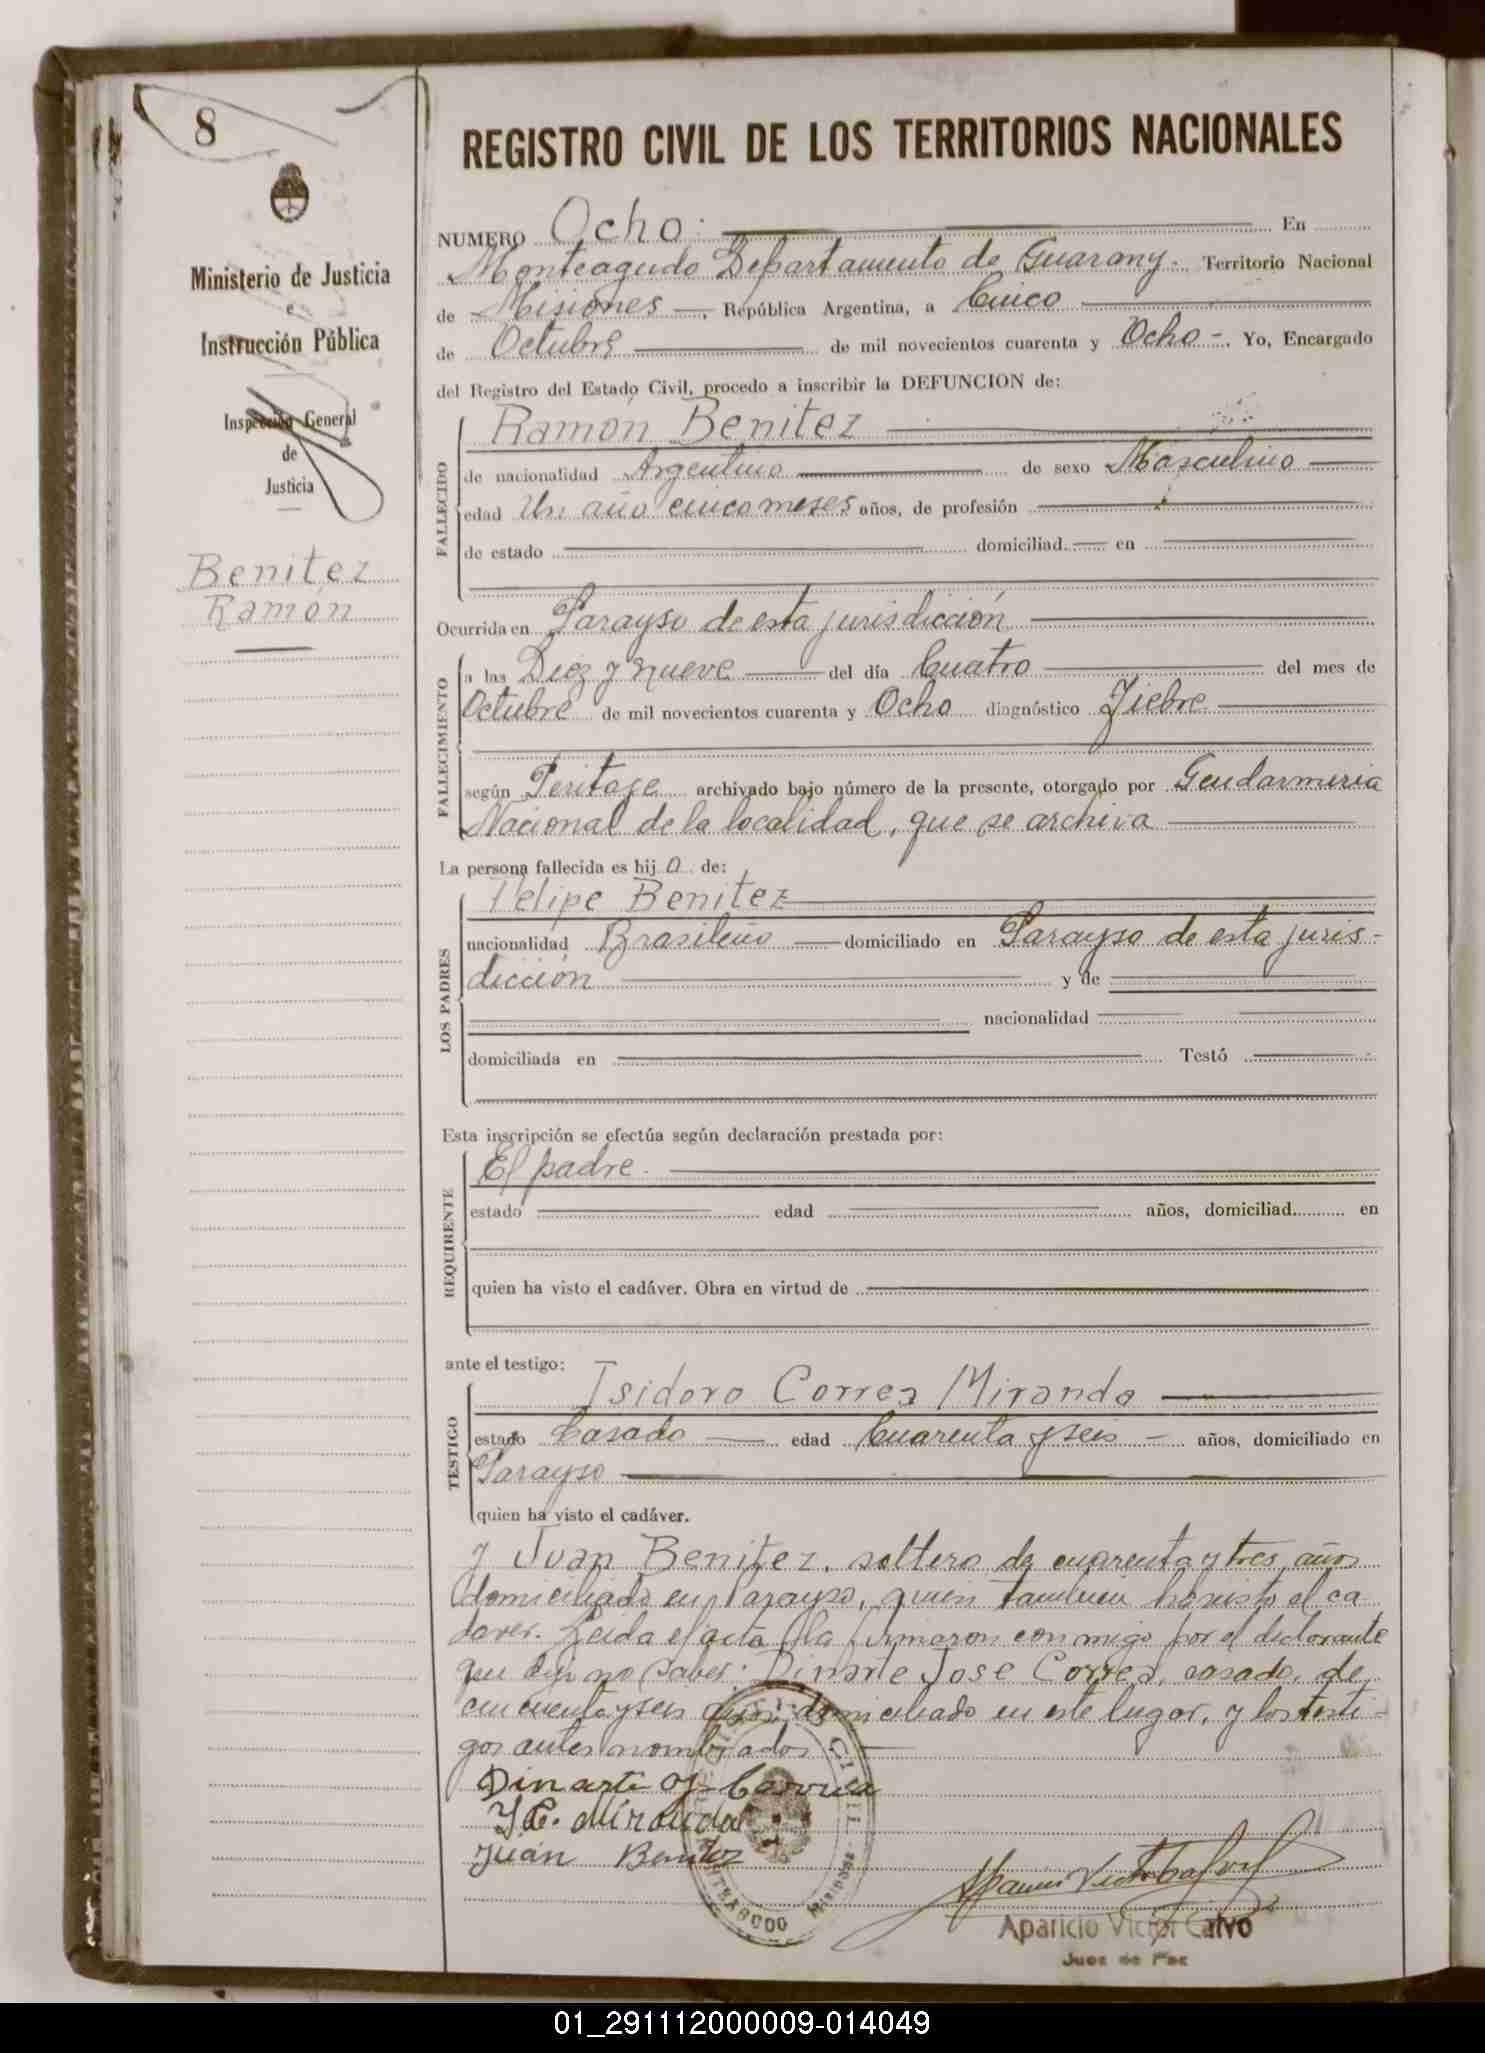 8
Ministerio de Justicia
e
Instrucción Pública
Inspección General
de
Justicia
Benitez
Ramón
REGISTRO CIVIL DE LOS TERRITORIOS NACIONALES
NUMERO Ocho. En
Monteagudo Departamento de Guarany. Territorio Nacional
de Misiones, República Argentina, a Cinco
de Octubre de mil novecientos cuarenta y Ocho -. Yo, Encargado
del Registro del Estado Civil, procedo a inscribir la DEFUNCION de:
FALLECIDO
Ramón Benitez
de nacionalidad Argentino de sexo Masculino
edad Un año cinco meses años, de profesión
de estado domiciliad en
Ocurrida en Parayso de esta jurisdicción
FALLECIMIENTO
a las Diez y nueve del día Cuatro del mes de
Octubre de mil novecientos cuarenta y Ocho diagnóstico Fiebre
según Peritage archivado bajo número de la presente, otorgado por Gendarmeria
Nacional de la localidad, que se archiva
La persona fallecida es hijo de:
LOS PADRES
Felipe Benitez
nacionalidad Brasileño domiciliado en Parayso de esta juris-
dicción y de
nacionalidad
domiciliada en Testó
Esta inscripción se efectúa según declaración prestada por:
REQUIRENTE
El padre.
estado edad años, domiciliad en
quien ha visto el cadáver. Obra en virtud de
ante el testigo:
TESTIGO
Isidoro Correa Miranda
estado Casado edad Cuarenta y seis - años, domiciliado en
Parayso
quien ha visto el cadáver.
y Juan Benitez, soltero de cuarenta y tres años
domiciliado en Parayso, quien tambien ha visto el ca
daver. Leida el acta la firmaron conmigo por el declarante
que dijo no saber: Dinarte Jose Correa, casado, de
cincuenta y seis años, domiciliado en este lugar, y los testi-
gos antes nombrados
Dinarte J. Correa
Y C. Miranda
Juan Benitez
CIVIL
MONTEAGUDO Misiones
Aparicio Victor Calvo
Juez de Paz
01_291112000009-014049